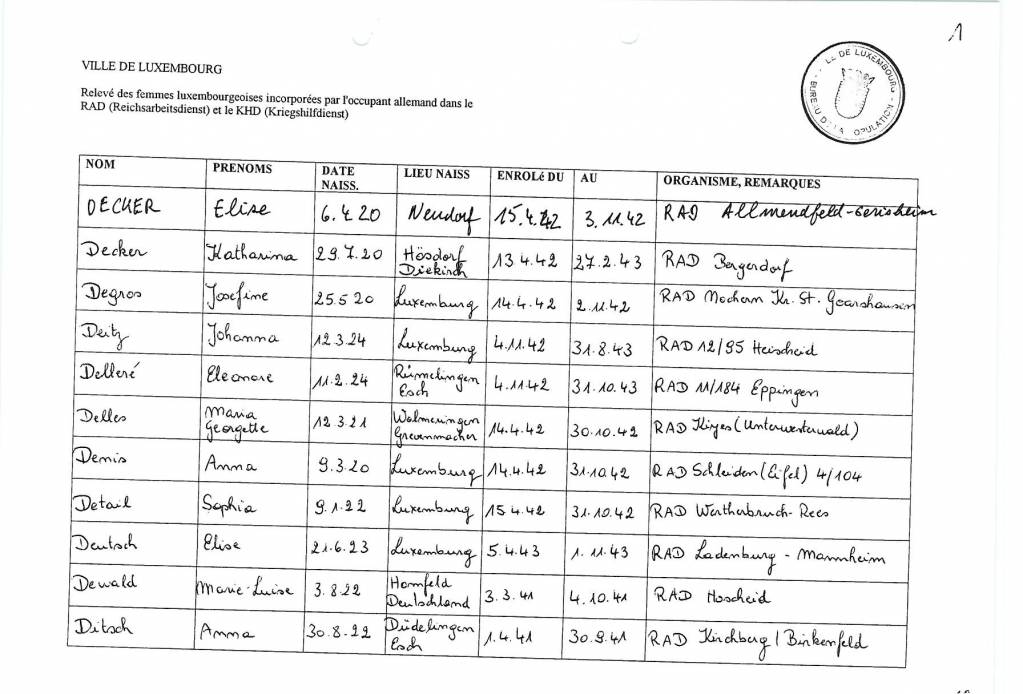 1
VILLE DE LUXEMBOURG
Relevé des femmes luxembourgeoises incorporées par l'occupant allemand dans le
RAD (Reichsarbeitsdienst) et le KHD (Kriegshilfdienst)
LE DE LUXEMBOURG - BUREAU DE LA OPULATION -
NOM PRENOMS DATE NAISS. LIEU NAISS ENROLé DU AU ORGANISME, REMARQUES
DECKER Elise 6.4.20 Neudorf 15.4.42 3.11.42 RAD Allmendfeld-Gerisheim
Decker Katharina 29.7.20 Hösdorf Diekirch 13 4.42 27.2.43 RAD Bergendorf
Degros Josefine 25.5 20 Luxemburg 14.4.42 2.11.42 RAD Mochern Kr. St. Goarshausen
Deitz Johanna 12.3.24 Luxemburg 4.11.42 31.8.43 RAD 12/95 Heischeid
Delleré Eleonore 11.2.24 Rümelingen Esch 4.11.42 31.10.43 RAD 11/184 Eppingen
Delles Maria Georgette 12.3.21 Wolmeringen Grevenmacher 14.4.42 30.10.42 RAD (Unterwesterwald)
Demis Anna 9.3.20 Luxemburg 14.4.42 31.10.42 RAD Schleiden (Eifel) 4/104
Detail Sophia 9.1.22 Luxemburg 15 4.42 31.10.42 RAD Wertherbruch-Rees
Deutsch Elise 21.6.23 Luxemburg 5.4.43 1.11.43 RAD Ladenburg - Mannheim
Dewald Marie-Luise 3.8.22 Homfeld Deutschland 3.3.41 4.10.41 RAD Hoscheid
Ditsch Anna 30.8.22 Düdelingen Esch 1.4.41 30.9.41 RAD Kirchberg / Birkenfeld